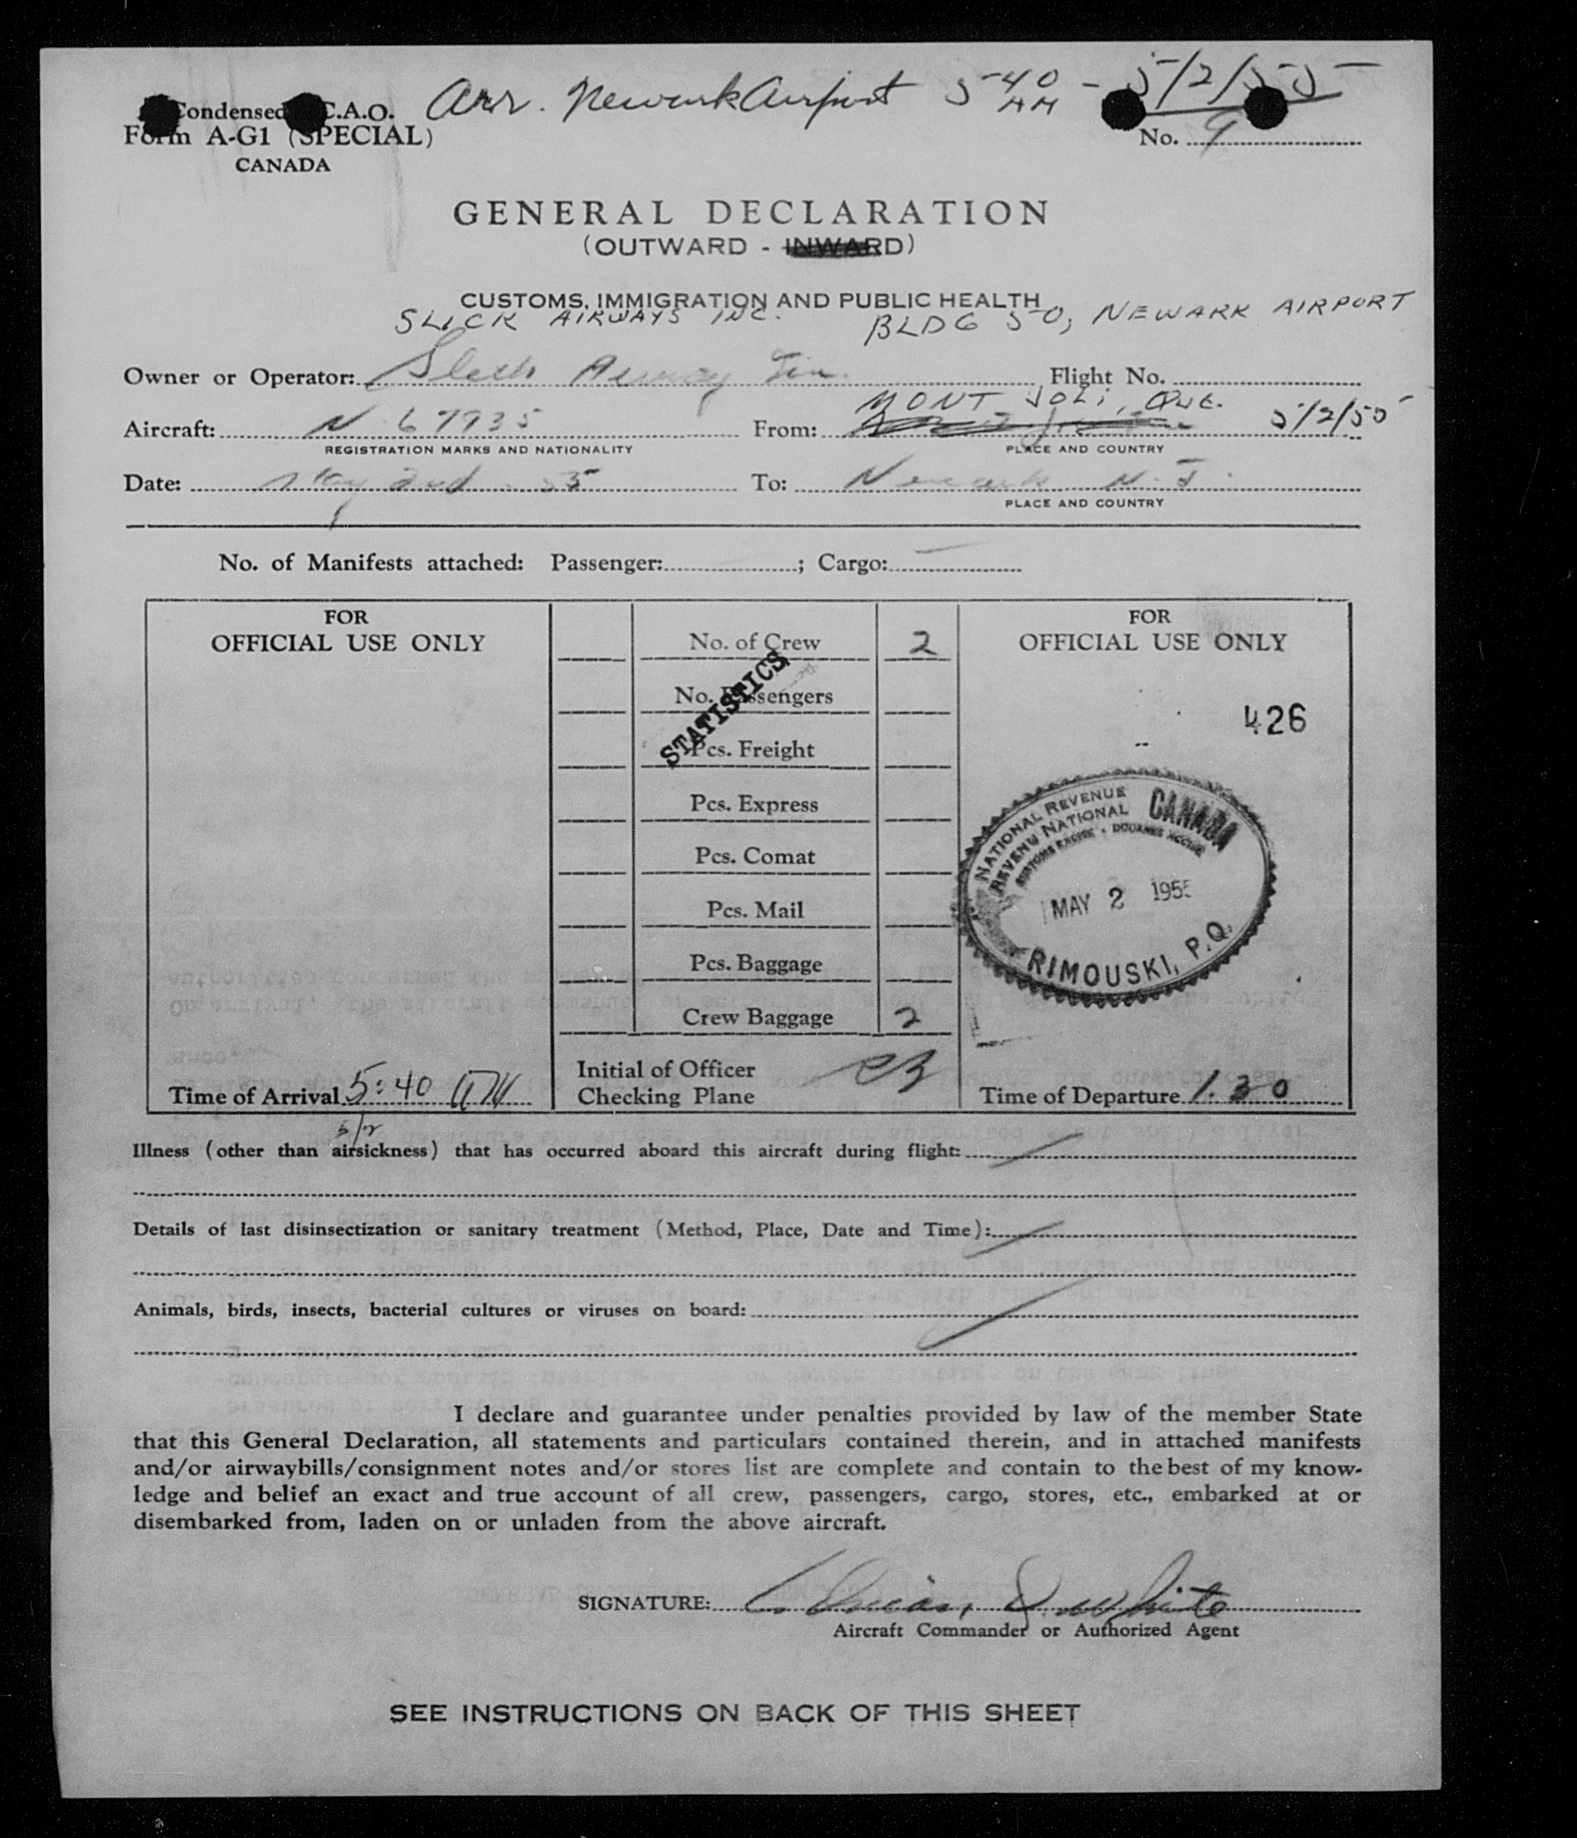 Arr. Newark Airport 5 40 AM - 5/2/55
Condensed I.C.A.O.
Form A-G1 (SPECIAL)
CANADA
No. 9
GENERAL DECLARATION
(OUTWARD - INWARD)
CUSTOMS, IMMIGRATION AND PUBLIC HEALTH
SLICK AIRWAYS INC. BLDG 50, NEWARK AIRPORT
Owner or Operator: Flight No.
MONT JOLI, QUE. 5/2/55
Aircraft: N 67935 From:
REGISTRATION MARKS AND NATIONALITY PLACE AND COUNTRY
Date: May 2nd 55 To: Newark N.J.
PLACE AND COUNTRY
No. of Manifests attached: Passenger: ; Cargo:
FOR
OFFICIAL USE ONLY
Time of Arrival 5:40 AM
5/2
No. of Crew 2
No. Passengers
STATISTICS
Pcs. Freight
Pcs. Express
Pcs. Comat
Pcs. Mail
Pcs. Baggage
Crew Baggage 2
Initial of Officer
Checking Plane
FOR
OFFICIAL USE ONLY
426
NATIONAL REVENUE CANADA
REVENU NATIONAL
CUSTOMS EXCISE · DOUANES ACCISE
MAY 2 1955
RIMOUSKI, P.Q.
Time of Departure 1.30
Illness (other than airsickness) that has occurred aboard this aircraft during flight:
Details of last disinsectization or sanitary treatment (Method, Place, Date and Time):
Animals, birds, insects, bacterial cultures or viruses on board:
I declare and guarantee under penalties provided by law of the member State
that this General Declaration, all statements and particulars contained therein, and in attached manifests
and/or airwaybills/consignment notes and/or stores list are complete and contain to the best of my know-
ledge and belief an exact and true account of all crew, passengers, cargo, stores, etc., embarked at or
disembarked from, laden on or unladen from the above aircraft.
SIGNATURE: White
Aircraft Commander or Authorized Agent
SEE INSTRUCTIONS ON BACK OF THIS SHEET